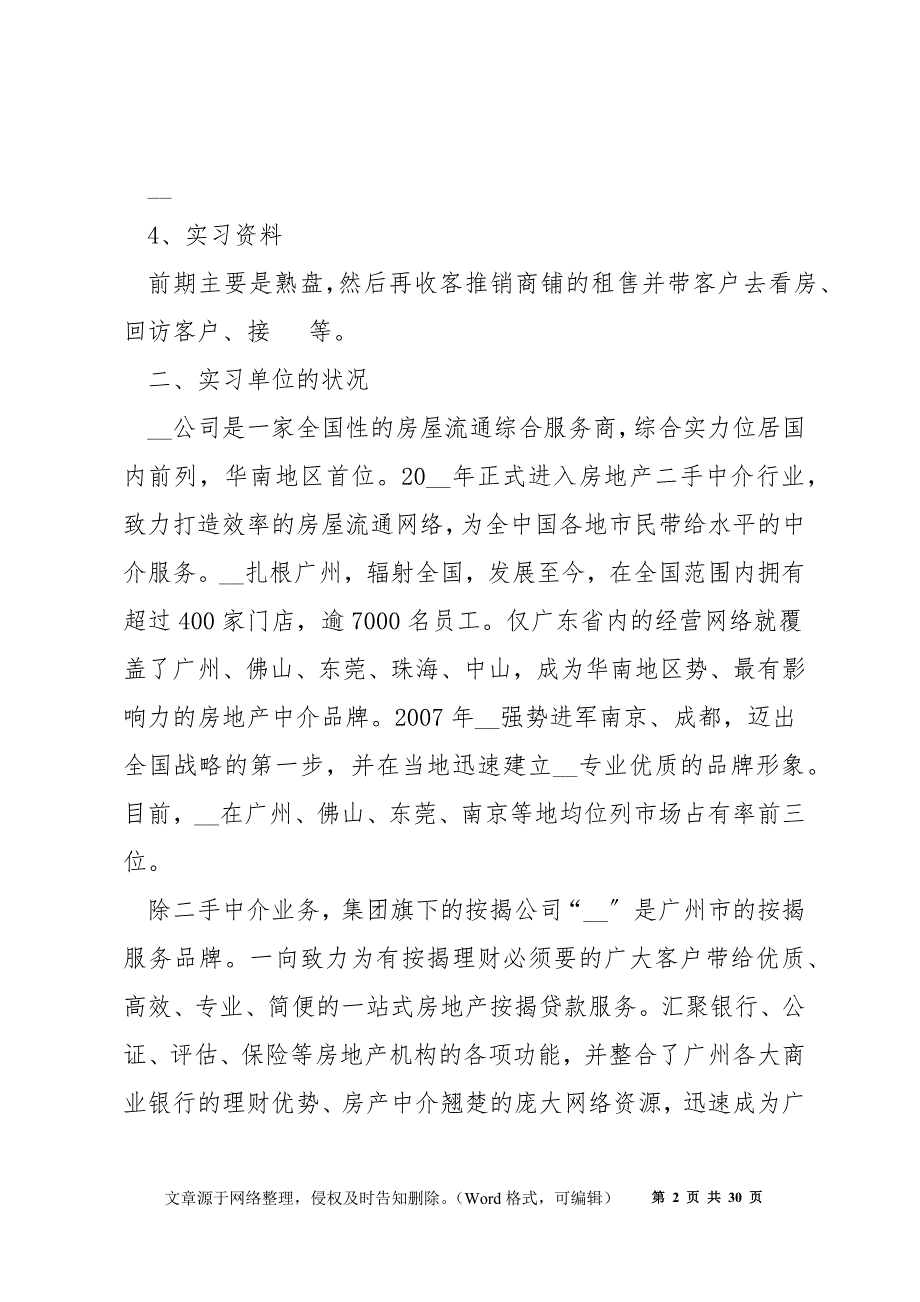 __
4、实习资料
前期主要是熟盘,然后再收客推销商铺的租售并带客户去看房、
回访客户、接 等。
二、实习单位的状况
__公司是一家全国性的房屋流通综合服务商,综合实力位居国
内前列，华南地区首位。20__年正式进入房地产二手中介行业，
致力打造效率的房屋流通网络,为全中国各地市民带给水平的中
介服务。__扎根广州，辐射全国，发展至今，在全国范围内拥有
超过 400 家门店，逾 7000 名员工。仅广东省内的经营网络就覆
盖了广州、佛山、东莞、珠海、中山，成为华南地区势、最有影
响力的房地产中介品牌。2007 年__强势进军南京、成都，迈出
全国战略的第一步，并在当地迅速建立__专业优质的品牌形象。
目前，__在广州、佛山、东莞、南京等地均位列市场占有率前三
位。
除二手中介业务，集团旗下的按揭公司“__〞是广州市的按揭
服务品牌。一向致力为有按揭理财必须要的广大客户带给优质、
高效、专业、简便的一站式房地产按揭贷款服务。汇聚银行、公
证、评估、保险等房地产机构的各项功能，并整合了广州各大商
业银行的理财优势、房产中介翘楚的庞大网络资源，迅速成为广
文章源于网络整理，侵权及时告知删除。（Word 格式，可编辑） 第 2 页 共 30 页